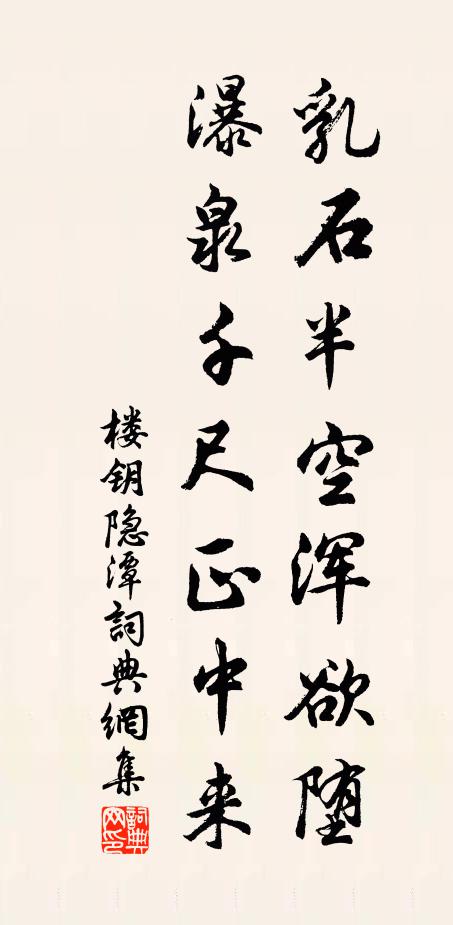 乳石半空浑欲堕
瀑泉千尺正中来
楼钥隐潭詞典網集
詞典网印